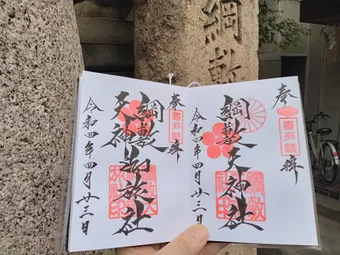 綱敷
奉拝
喜多埜
綱敷天神社
令和四年四月廿三日
奉拝
綱敷
天神御旅社
令和四年四月廿三日